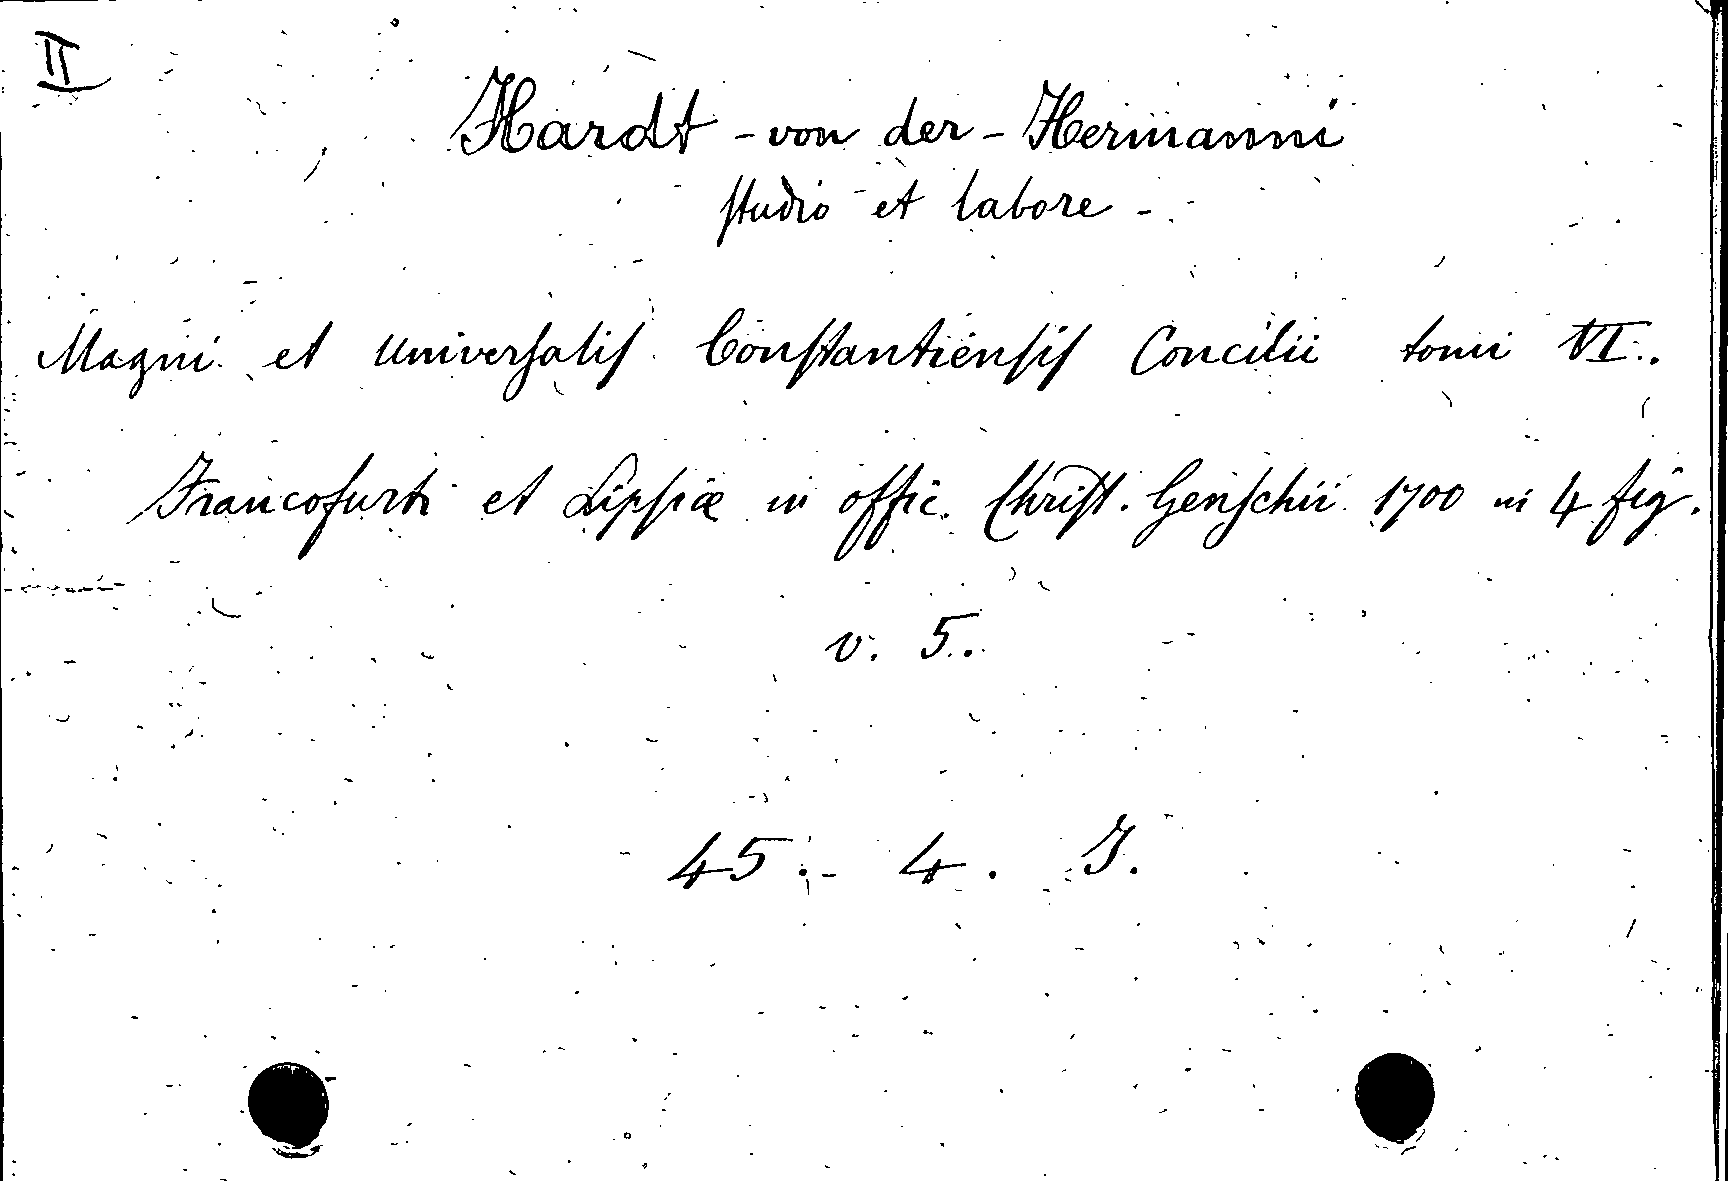 II
Hardt - von der - Hermanni
studio et labore -
Magni et universalis Constantiensis Concilii tomi VI.
Francofurti et Lipsiæ in offic. Christ. Genschii 1700 in 4 fig.
v. 5.
45. 4. J.